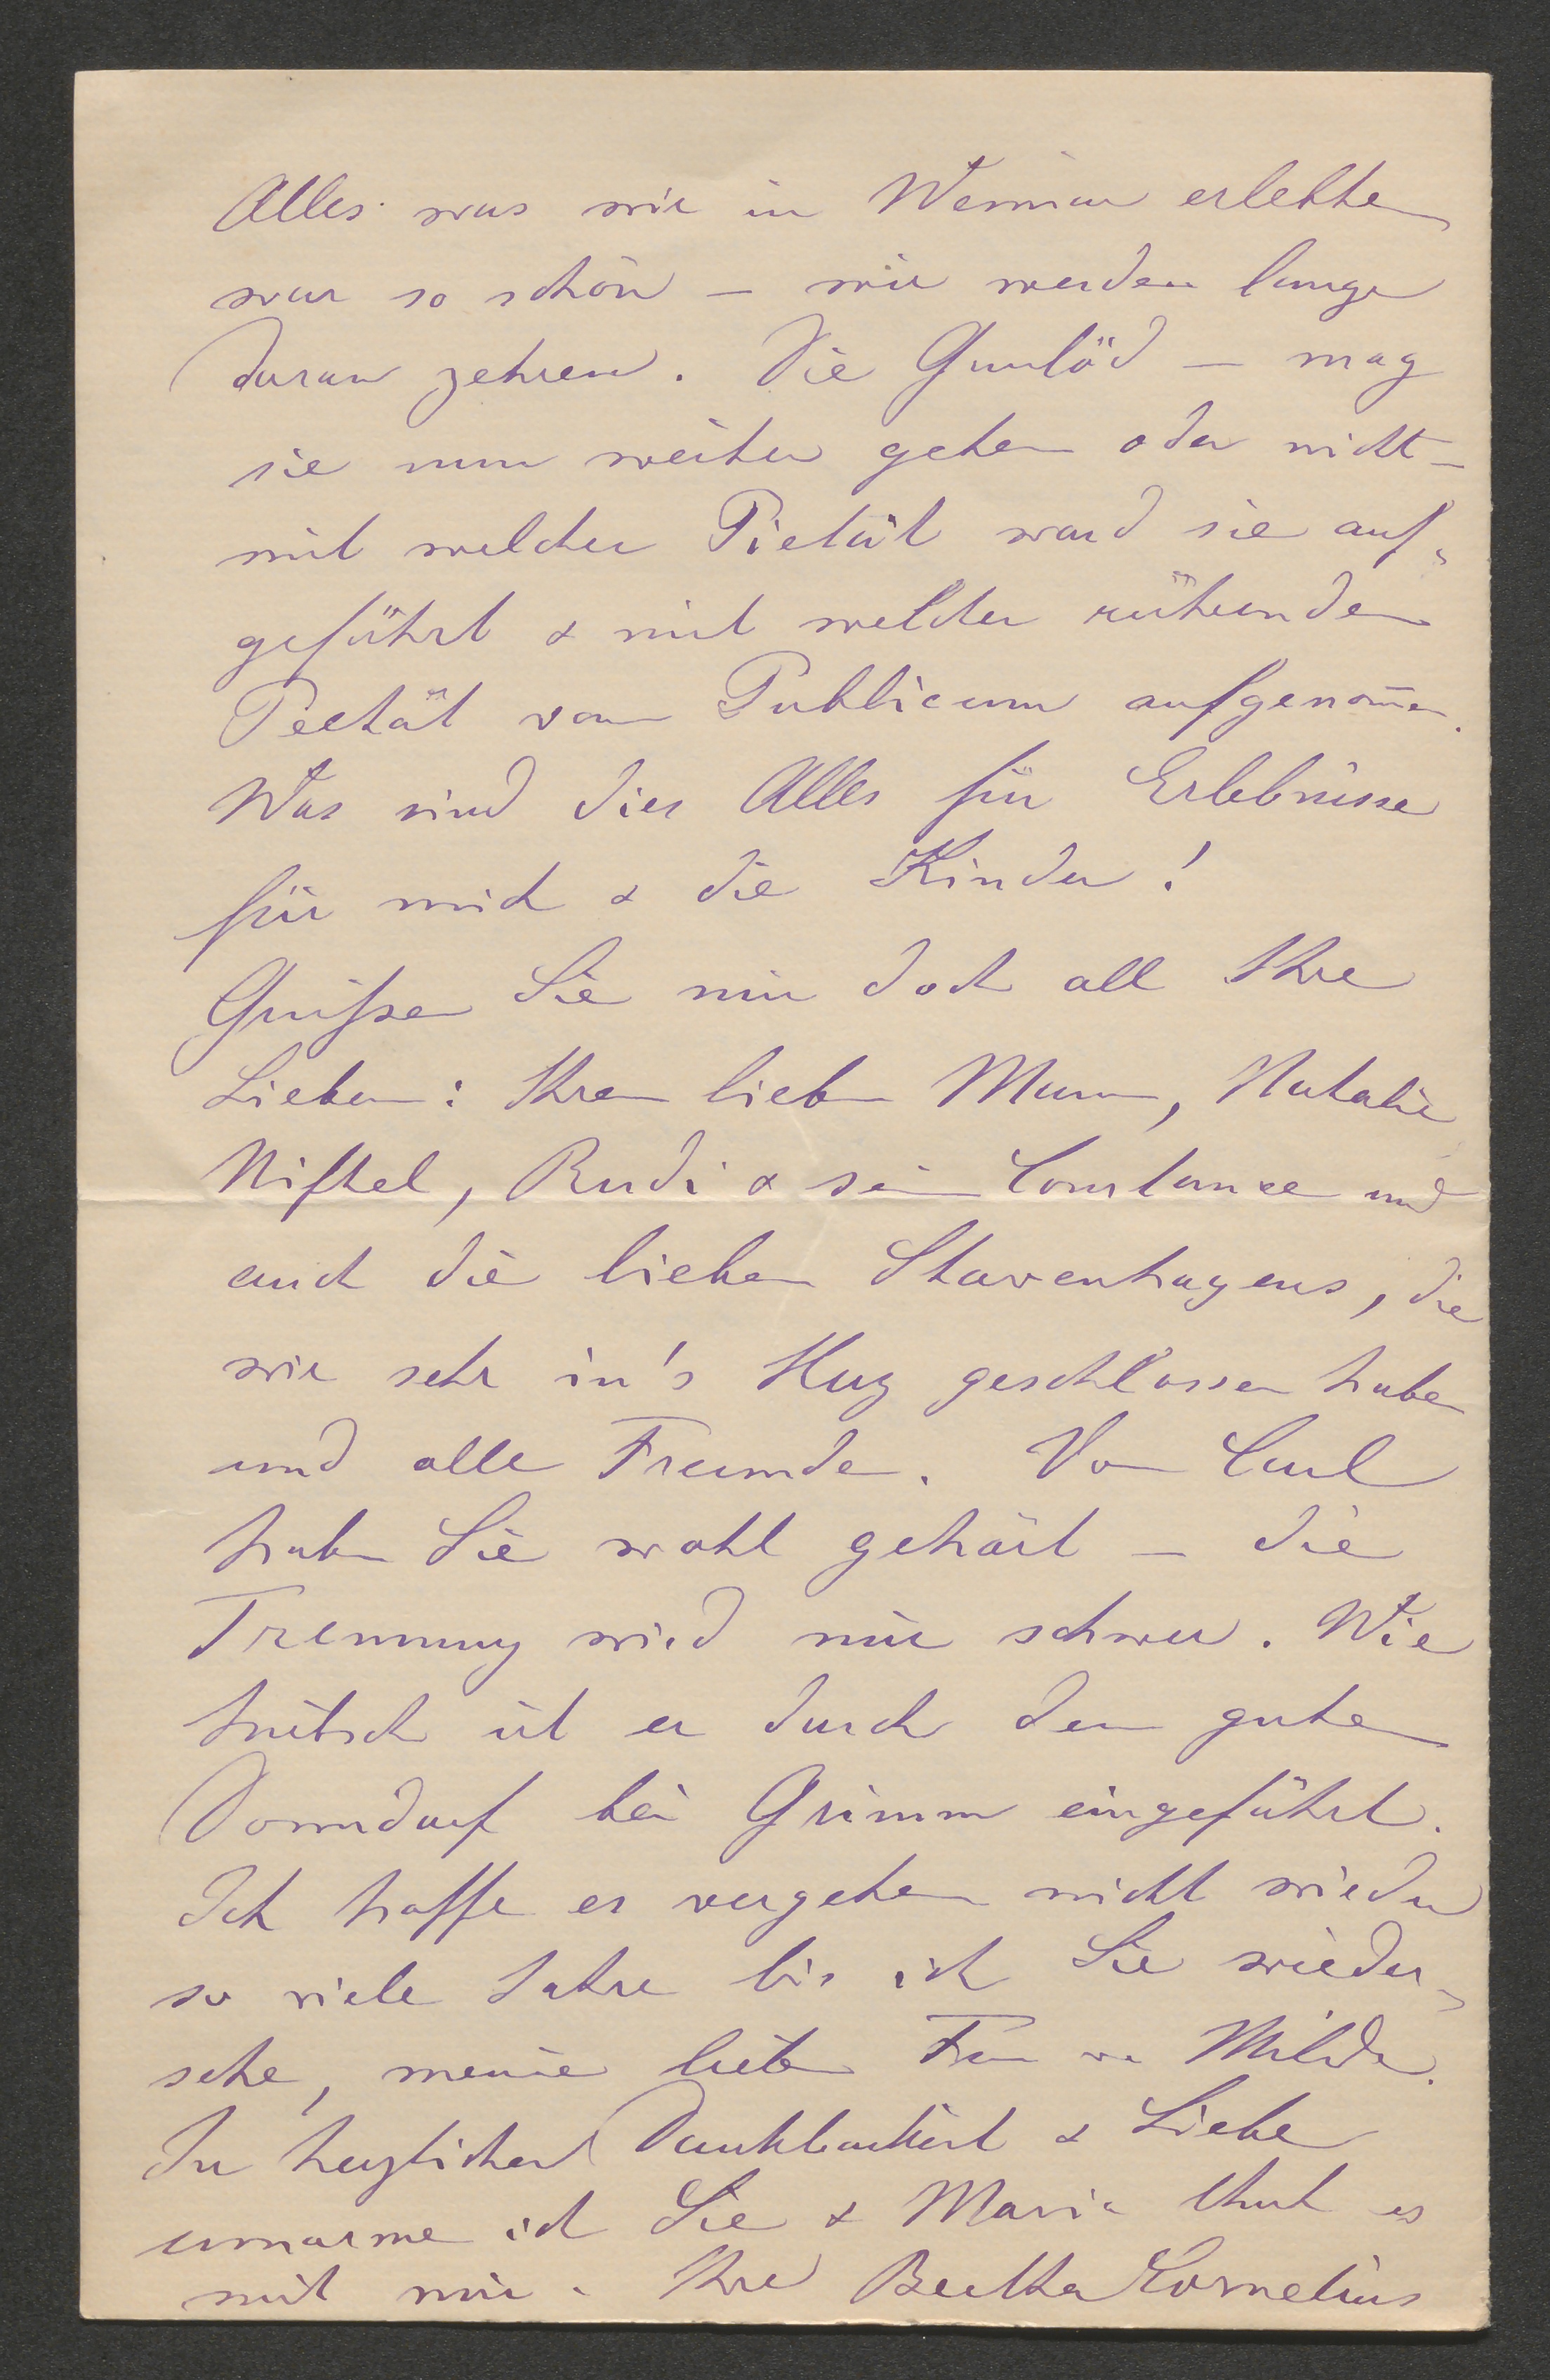 Alles was wir in Weimar erlebten
war so schön – wir werden lange
daran zehren. Die Gunlöd – mag
sie nun weiter gehen oder nicht –
mit welcher Pietät ward sie auf-
geführt & mit welcher rührenden
Pietät vom Publicum aufgenom̅en.
Was sind dies Alles für Erlebnisse
für mich & die Kinder!
Grüßen Sie mir doch all Ihre
Lieben: Ihren lieben Mann, Natalie
Niftel, Rudi & sein Constanze und
auch die lieben Stavenhagens, die
wir sehr in's Herz geschlossen haben
und alle Freunde. Von Carl
haben Sie wohl gehört – die
Trennung wird mir schwer. Wie
hübsch ist er durch den guten
Donndorf bei Grimm eingeführt.
Ich hoffe es vergehen nicht wieder
so viele Jahre bis ich Sie wieder-
sehe, meine liebe Frau von Milde.
In herzlicher Dankbarkeit & Liebe
umarme ich Sie & Maria thut es
mit mir. Ihre Bertha Cornelius